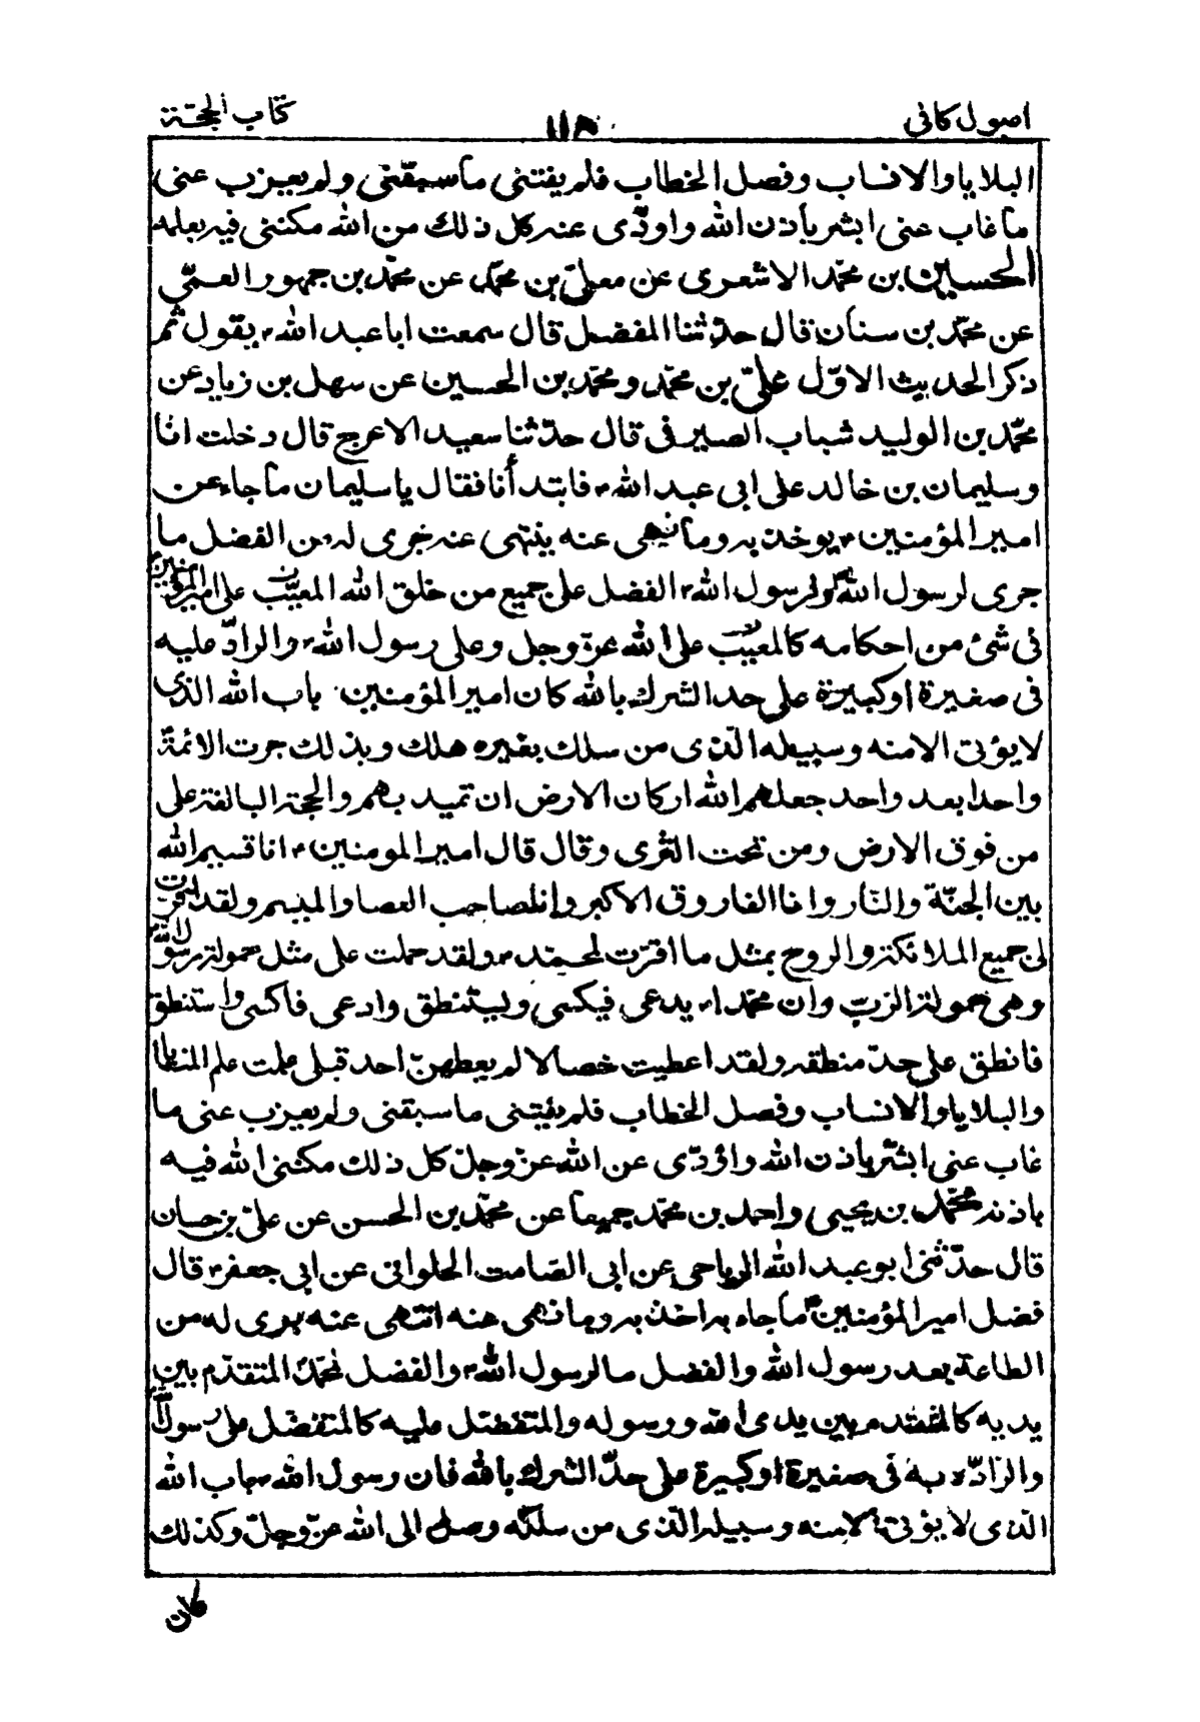 اصول كافى
١١٨
كتاب الحجة
البلايا والانساب وفصل الخطاب فلم يفتنى ما سبقنى ولم يعزب عنى
ما غاب عنى ابشر باذن الله واودّى عنه كل ذلك من الله مكننى فيه بعلمه
الحسين بن محمّد الاشعرى عن معلىّ بن محمّد عن محمّد بن جمهور العمّى
عن محمّد بن سنان قال حدّثنا المفضل قال سمعت ابا عبد الله ؑ يقول ثم
ذكر الحديث الاوّل علىّ بن محمّد ومحمّد بن الحسين عن سهل بن زياد عن
محمّد بن الوليد شباب الصيرفى قال حدّثنا سعيد الاعرج قال دخلت انا
وسليمان بن خالد على ابى عبد الله ؑ فابتدأنا فقال يا سليمان ما جاء عن
امير المؤمنين ؑ يوخذ به وما نهى عنه ينتهى عنه جرى له من الفضل ما
جرى لرسول الله ولرسول الله ؐ الفضل على جميع من خلق الله المعيّب على امير المؤمنين
فى شئ من احكامه كالمعيّب على الله عزّ وجل وعلى رسول الله ؐ والرادّ عليه
فى صغيرة او كبيرة على حد الشرك بالله كان امير المؤمنين باب الله الذى
لا يؤتى الا منه وسبيله الّذى من سلك بغيره هلك وبذلك جرت الائمّة
واحدا بعد واحد جعلهم الله اركان الارض ان تميد بهم والحجة البالغة على
من فوق الارض ومن تحت الثرى وقال قال امير المومنين ؑ انا قسيم الله
بين الجنّة والنّار وانا الفاروق الاكبر وانا صاحب العصا والميسم ولقد اقرّت
لى جميع الملائكة والروح بمثل ما اقرّت لمحمّد ؐ ولقد حملت على مثل حمولة رسول الله
وهى حمولة الربّ وان محمّدا ؐ يدعى فيكسى ويستنطق وادعى فاكسى واستنطق
فانطق على حدّ منطقه ولقد اعطيت خصالا لم يعطهنّ احد قبلى علمت علم المنايا
والبلايا والانساب وفصل الخطاب فلم يفتنى ما سبقنى ولم يعزب عنى ما
غاب عنى ابشّر باذن الله واؤدّى عن الله عزّ وجلّ كل ذلك مكننى الله فيه
باذنه محمّد بن يحيى واحمد بن محمّد جميعا عن محمّد بن الحسن عن علىّ بن حسان
قال حدّثنى ابو عبد الله الرياحى عن ابى الصّامت الحلوانى عن ابى جعفر ؑ قال
فضل امير المؤمنين ؑ ما جاء به اخذ به وما نهى عنه انتهى عنه جرى له من
الطاعة بعد رسول الله والفضل ما لرسول الله ؐ والفضل لمحمّد المتقدّم بين
يديه كالمتقدم بين يدى الله ورسوله والمتفضّل عليه كالمتفضّل على رسول الله
والرّادّ به فى صغيرة او كبيرة على حدّ الشرك بالله فان رسول الله ؐ باب الله
الذى لا يؤتى الا منه وسبيله الّذى من سلكه وصل الى الله عزّ وجلّ وكذلك
كان